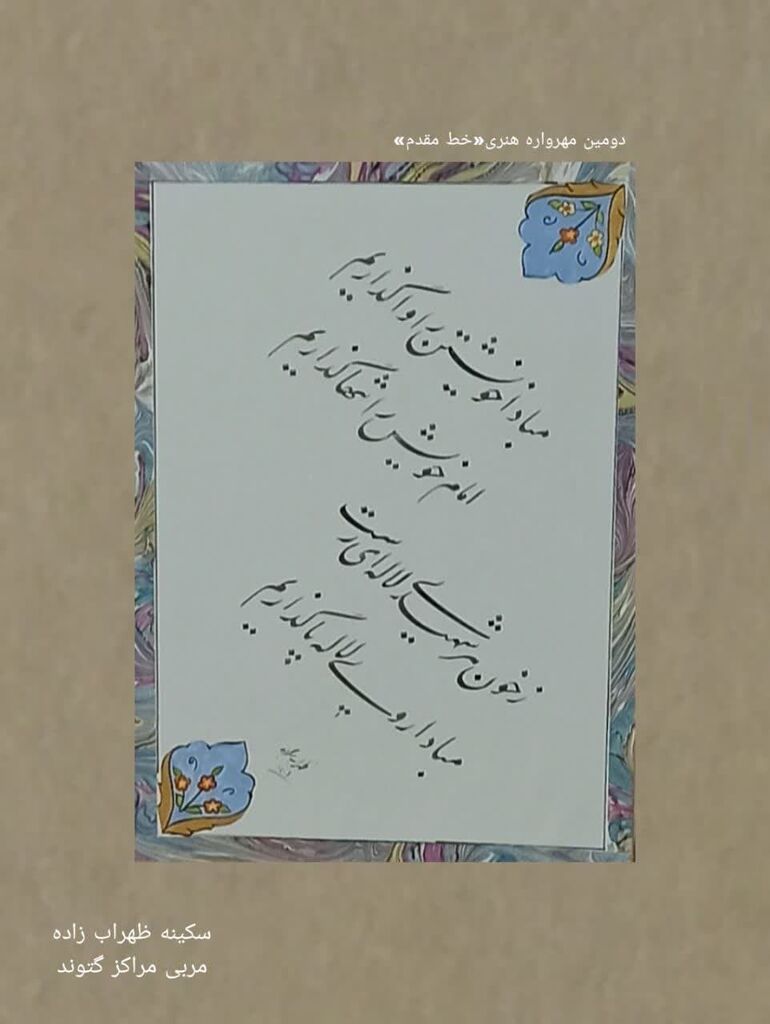 دومین مهرواره هنری«خط مقدم»
مبادا خویشتن را واگذاریم
امام خویش را تنها گذاریم
ز خون هر شهیدی لاله‌ای رست
مبادا روی لاله پا گذاریم
سکینه ظهراب زاده
مربی مراکز گتوند